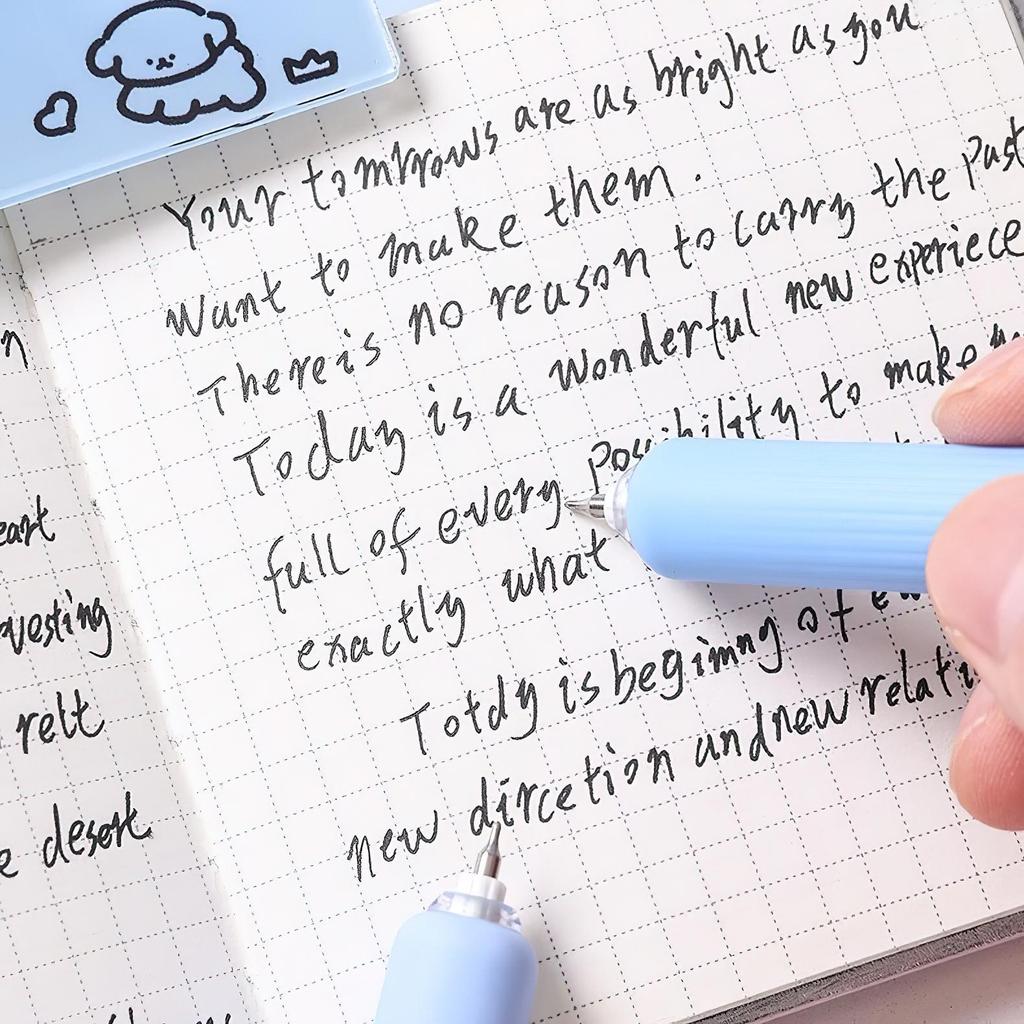 Your tomrrows are as bright as you
Want to make them.
There is no reason to carry the past
Today is a wonderful new experiece
full of every possibility to make
exactly what
Totdy is begimng of
new dircetion and new relati
n
eart
vesting
relt
e desert